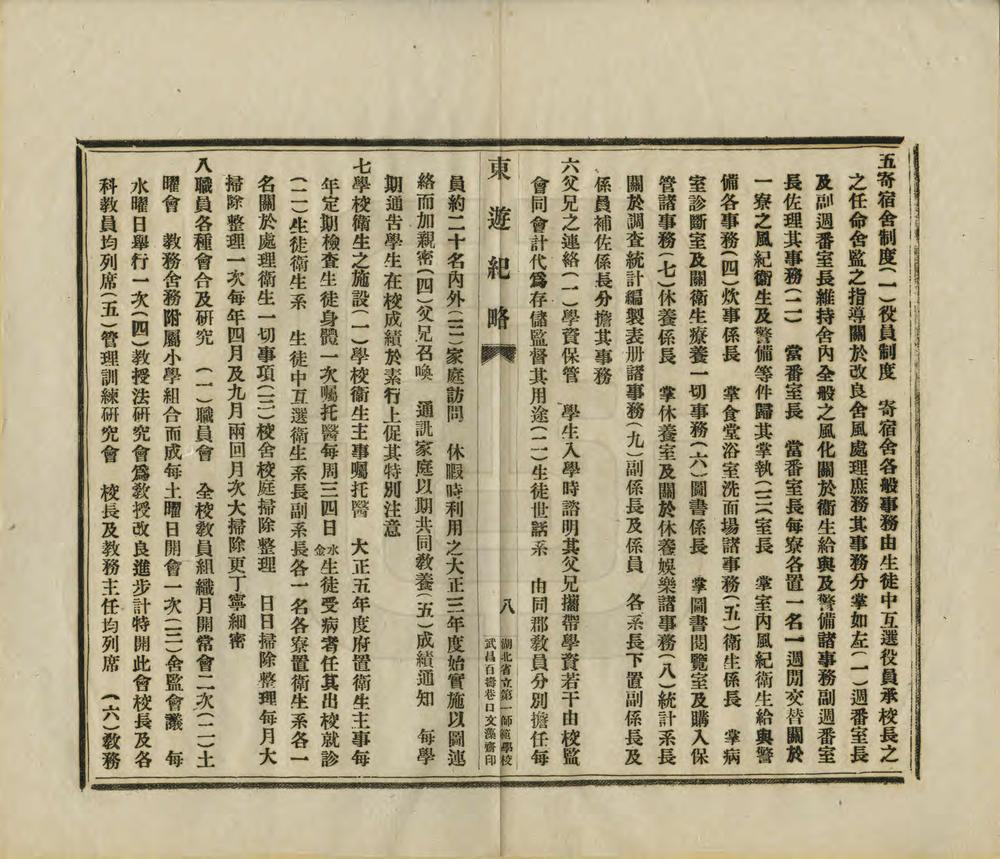 五寄宿舍制度(一)役員制度　寄宿舍各般事務由生徒中互選役員承校長之
之任命舍監之指導關於改良舍風處理庶務其事務分掌如左(一)週番室長
及副週番室長維持舍內全般之風化關於衞生給與及警備諸事務副週番室
長佐理其事務(二)　當番室長　當番室長每寮各置一名一週間交替關於
一寮之風紀衞生及警備等件歸其掌執(三)室長　掌室內風紀衞生給與警
備各事務(四)炊事係長　掌食堂浴室洗面場諸事務(五)衞生係長　掌病
室診斷室及關衞生療養一切事務(六)圖書係長　掌圖書閱覽室及購入保
管諸事務(七)休養係長　掌休養室及關於休養娛樂諸事務(八)統計系長
關於調查統計編製表册諸事務(九)副係長及係員　各系長下置副係長及
係員補佐係長分擔其事務
六父兄之連絡(一)學資保管　學生入學時諮明其父兄攜帶學資若干由校監
會同會計代爲存儲監督其用途(二)生徒世話系　由同郡教員分別擔任每
東遊紀略
八
湖北省立第一師範學校
武昌百壽巷口文藻齋印
員約二十名內外(三)家庭訪問　休暇時利用之大正三年度始實施以圖連
絡而加親密(四)父兄召喚　通訊家庭以期共同教養(五)成績通知　每學
期通告學生在校成績於素行上促其特別注意
七學校衞生之施設(一)學校衞生主事囑托醫　大正五年度府置衞生主事每
年定期檢查生徒身體一次囑托醫每周三四日水金生徒受病者任其出校就診
(二)生徒衞生系　生徒中互選衞生系長副系長各一名各寮置衞生系各一
名關於處理衞生一切事項(三)校舍校庭掃除整理　日日掃除整理每月大
掃除整理一次每年四月及九月兩回月次大掃除更丁寧細密
八職員各種會合及研究　(一)職員會　全校教員組織月開常會二次(二)土
曜會　教務舍務附屬小學組合而成每土曜日開會一次(三)舍監會議　每
水曜日舉行一次(四)教授法研究會爲教授改良進步計特開此會校長及各
科教員均列席(五)管理訓練研究會　校長及教務主任均列席　(六)教務